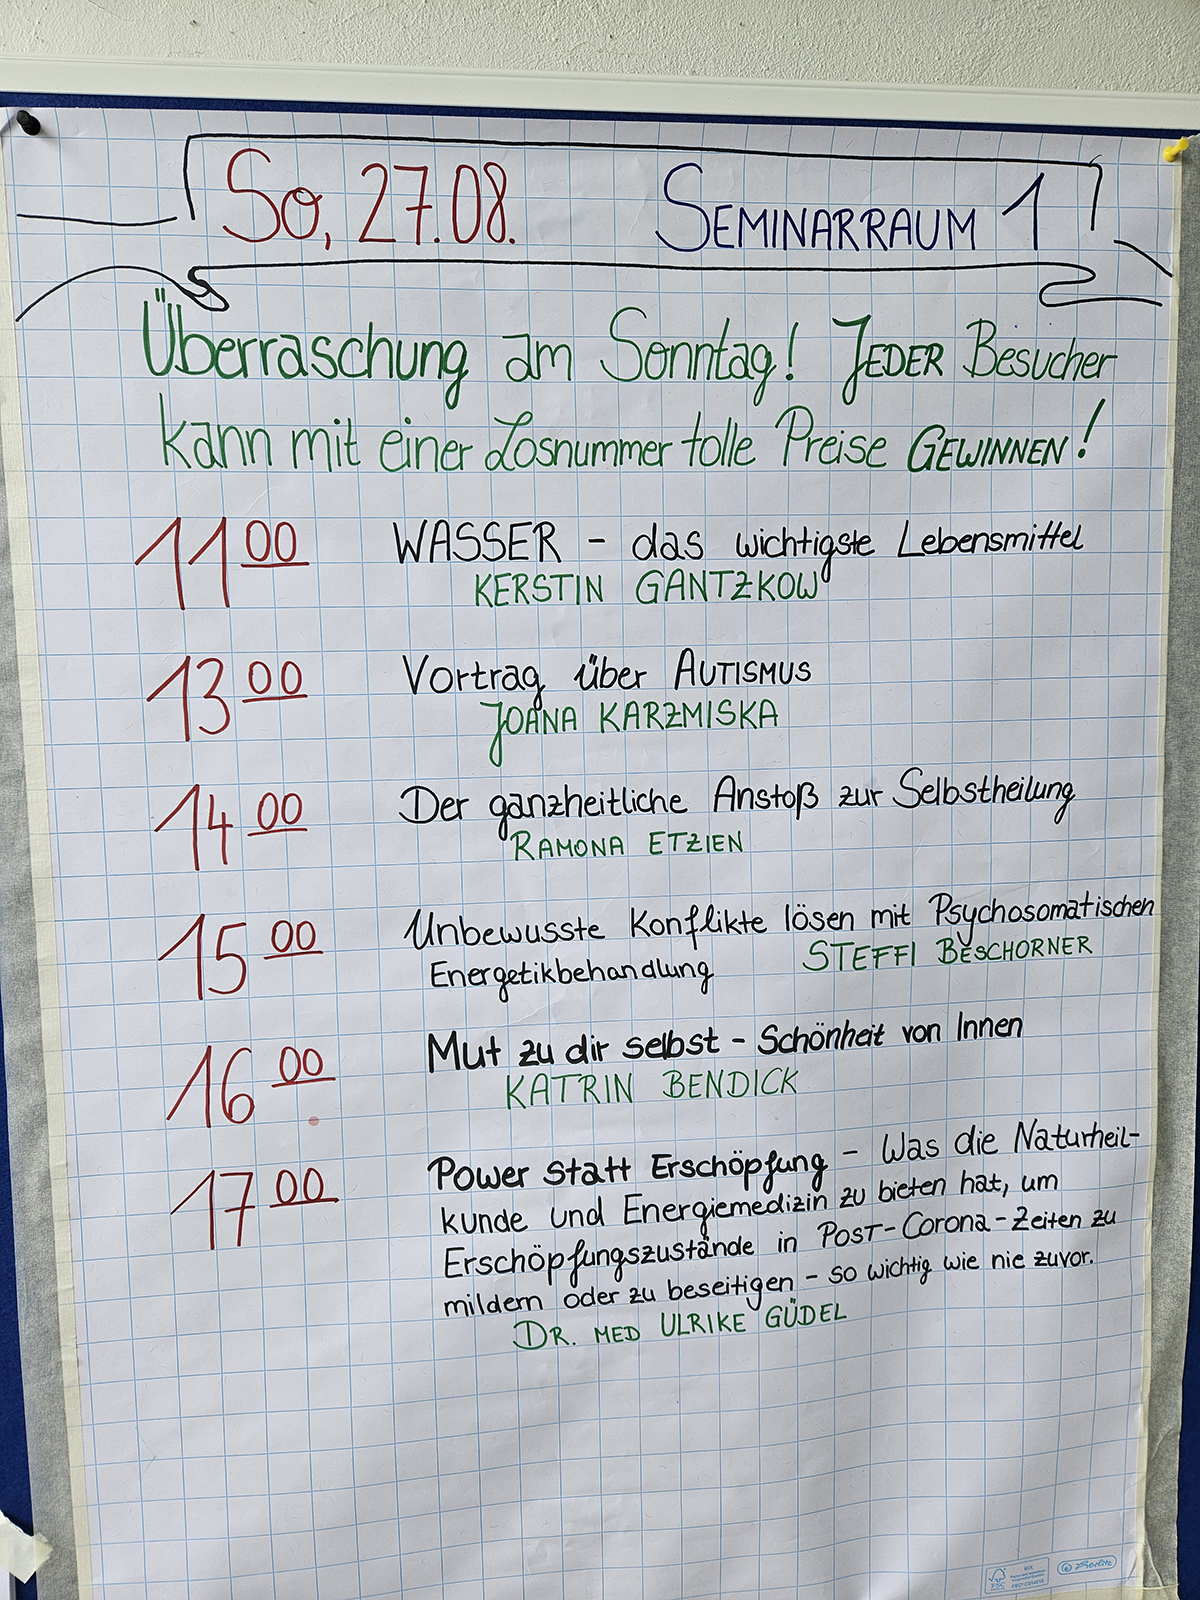 So, 27.08. SEMINARRAUM 1
Überraschung am Sonntag! JEDER Besucher
kann mit einer Losnummer tolle Preise GEWINNEN!
11 00 WASSER - das wichtigste Lebensmittel
KERSTIN GANTZKOW
13 00 Vortrag über AUTISMUS
JOANA KARZMISKA
14 00 Der ganzheitliche Anstoß zur Selbstheilung
RAMONA ETZIEN
15 00 Unbewusste Konflikte lösen mit Psychosomatischen
Energetikbehandlung STEFFI BESCHORNER
16 00 Mut zu dir selbst - Schönheit von Innen
KATRIN BENDICK
17 00 Power statt Erschöpfung - Was die Naturheil-
kunde und Energiemedizin zu bieten hat, um
Erschöpfungszustände in POST-Corona-Zeiten zu
mildern oder zu beseitigen - so wichtig wie nie zuvor.
DR. MED ULRIKE GÜDEL
FSC MIX